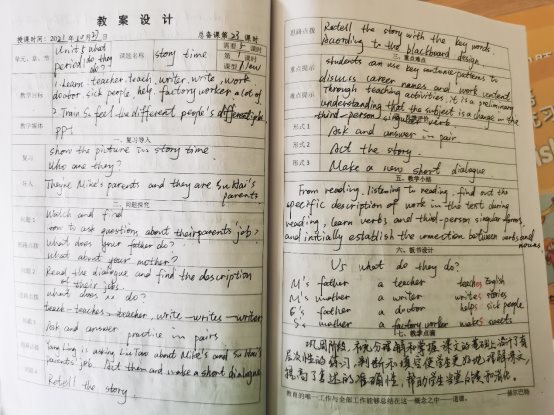 教案设计
授课时间: 2021年10月27日
总备课第23课时
单元、章、节
Unit 5 what period do they do?
课题名称
story time
需要5课时
第1课时
课型 New
教学目标
1. Learn teacher, teach, writer, write, work
doctor, sick people, help, factory worker a lot of
2. Train Ss feel the different people's different jobs
教学媒体
PPt
一、复习导入
复习
show the picture in story time
Who are they?
导入
They're Mike's parents and they are Su Hai's parents
二、问题探究
问题1
Watch and find
How to ask question about their parents' job?
思路点拨
What does your father do?
What about your mother?
问题2
Read the dialogue and find the description
of their jobs.
思路点拨
what does is do?
teach - teacher, write - writer
问题3
Ask and answer practice in pairs
思路点拨
Yang Ling is asking Liu Tao about Mike's and Su Hai's
parents' job. Act them and make a short dialogue
问题4
Retell the story
思路点拨
Retell the story with the key words.
According to the blackboard design.
三、重点难点
重点提示
students can use key sentence patterns to
discuss career names and work content
难点提示
Through teaching activities, it is a preliminary
understanding that the subject is a change in the
third-person singular verb
形式1
Ask and answer in pair
形式2
Act the story
形式3
Make a new short dialogue
五、教学小结
From reading, listening to reading, find out the
specific description of work in the text during
reading, learn verbs and third-person singular forms,
and initially establish the connection between verbs and nouns
六、板书设计
U5 what do they do?
M's father a teacher teaches English
M's mother a writer writes stories
S's father a doctor helps sick people
S's mother a factory worker makes sweets
七、教学点滴
巩固阶段,在充分理解和掌握课文的基础上进行有
层次性的练习,判断和填空使学生更好地理解课文,
提高了复述的准确性,帮助学生当堂消化。
教育的唯一工作与全部工作能够总结在这一概念之中——道德。
——赫尔巴特